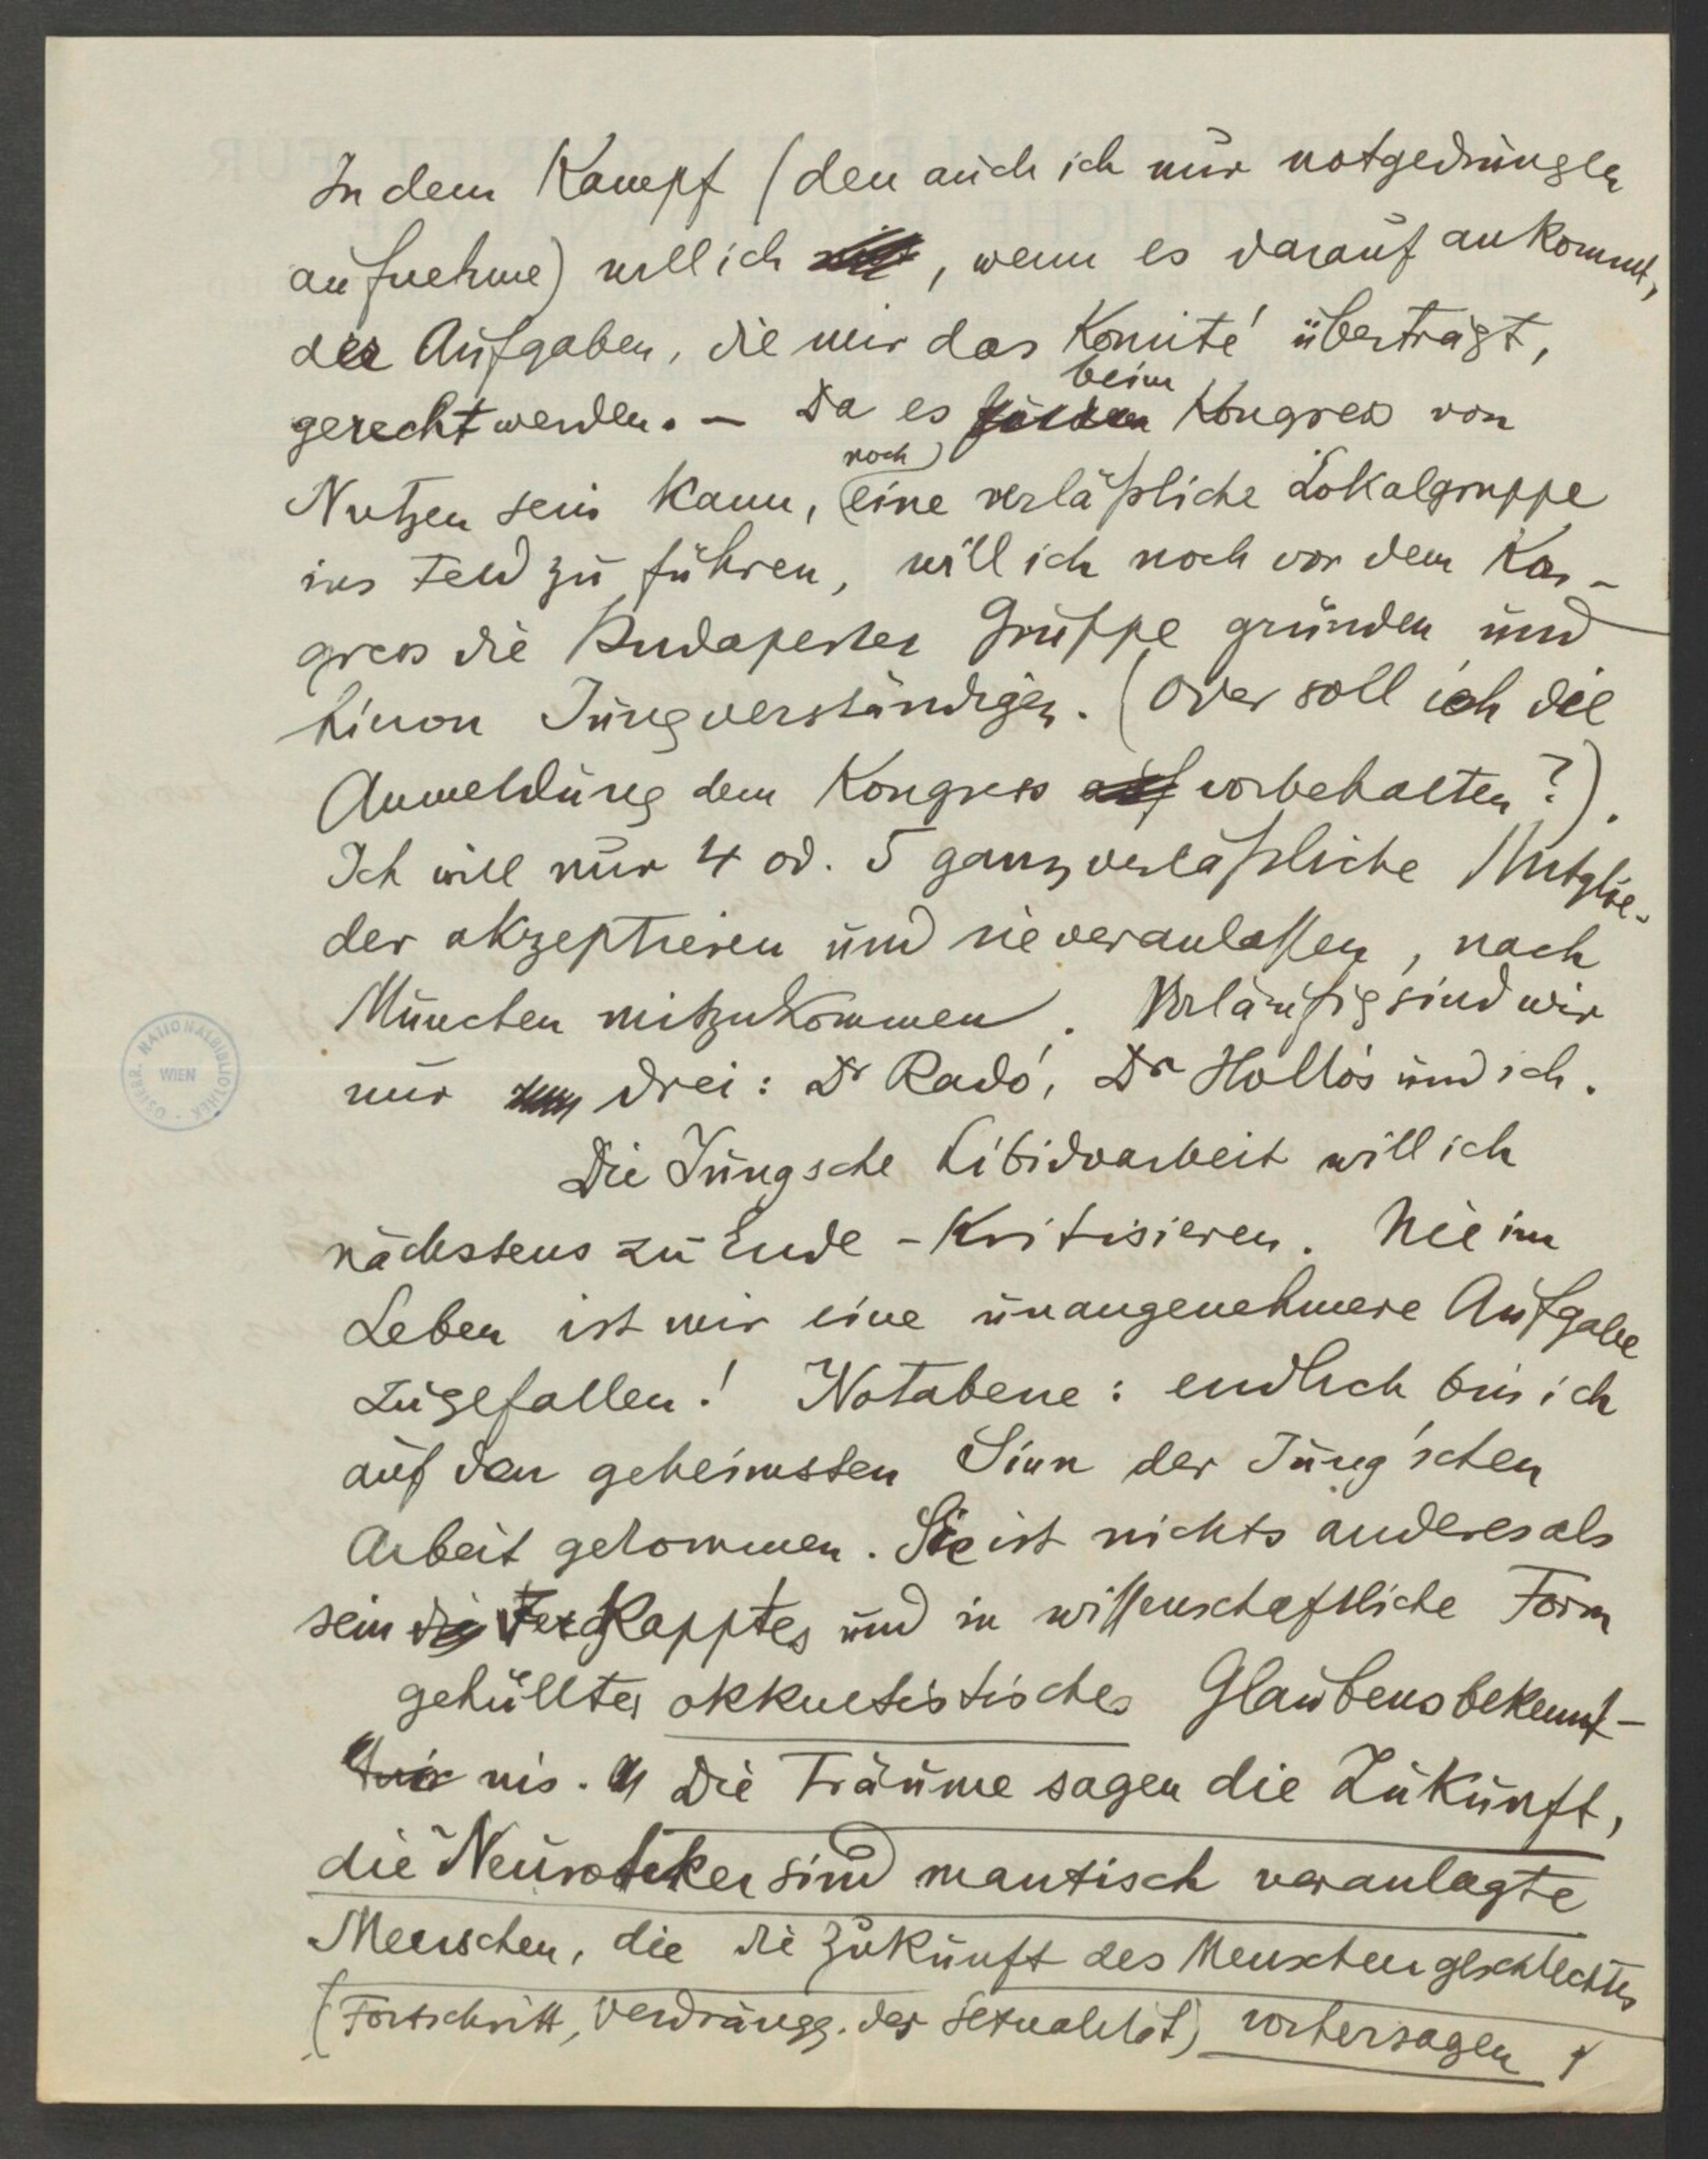 In dem Kampf (den auch ich nur notgedrungen
aufnehme) will ich , wenn es darauf ankommt,
der Aufgaben, die mir das Komité überträgt,
gerecht werden. – Da es beim Kongress von
Nutzen sein kann, noch eine verläßliche Lokalgruppe
ins Feld zu führen, will ich noch vor dem Kon-
gress die Budapester Gruppe gründen und
hievon Jung verständigen. (Oder soll ich die
Anmeldung dem Kongress vorbehalten?).
Ich will nur 4 od. 5 ganz verläßliche Mitglie-
der akzeptieren und sie veranlassen, nach
München mitzukommen. Vorläufig sind wir
nur drei: Dr Radó, Dr Hollós und ich.
Die Jungsche Libidoarbeit will ich
nächstens zu Ende-kritisieren. Nie im
Leben ist mir eine unangenehmere Aufgabe
zugefallen! Notabene: endlich bin ich
auf den geheimsten Sinn der Jung'schen
Arbeit gekommen. Sie ist nichts anderes als
sein verkapptes und in wissenschaftliche Form
gehülltes okkultistisches Glaubensbekennt-
nis. Die Träume sagen die Zukunft,
die Neurotiker sind mantisch veranlagte
Menschen, die die Zukunft des Menschengeschlechtes
(Fortschritt, Verdrängg. der Sexualität) vorhersagen
ÖSTERR. NATIONALBIBLIOTHEK
WIEN